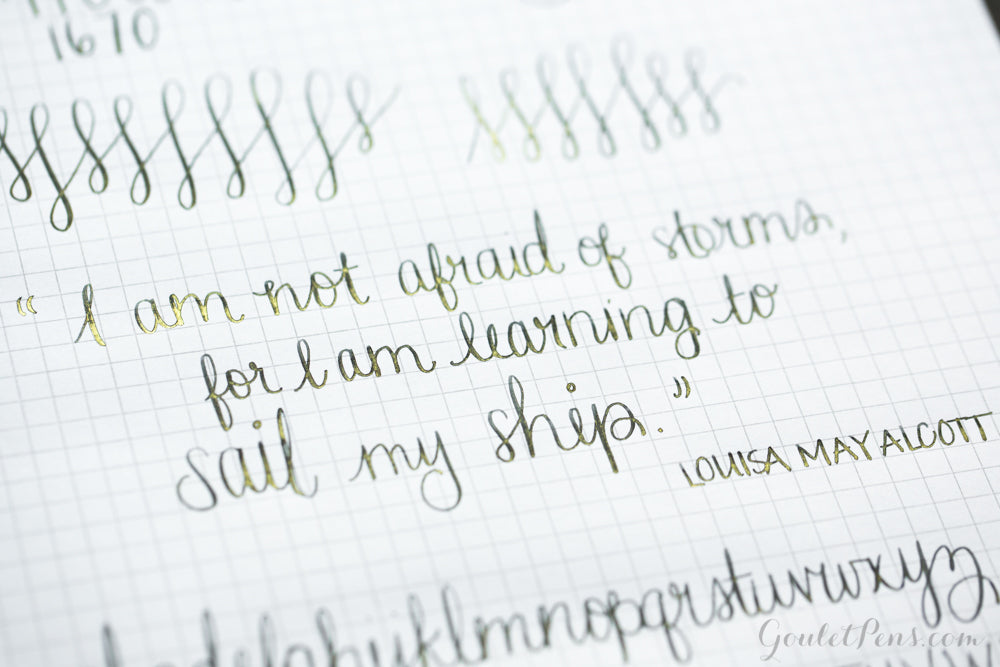 1670
“ I am not afraid of storms,
for I am learning to
sail my ship.”
LOUISA MAY ALCOTT
abcdefghijklmnopqrstuvwxyz
GouletPens.com